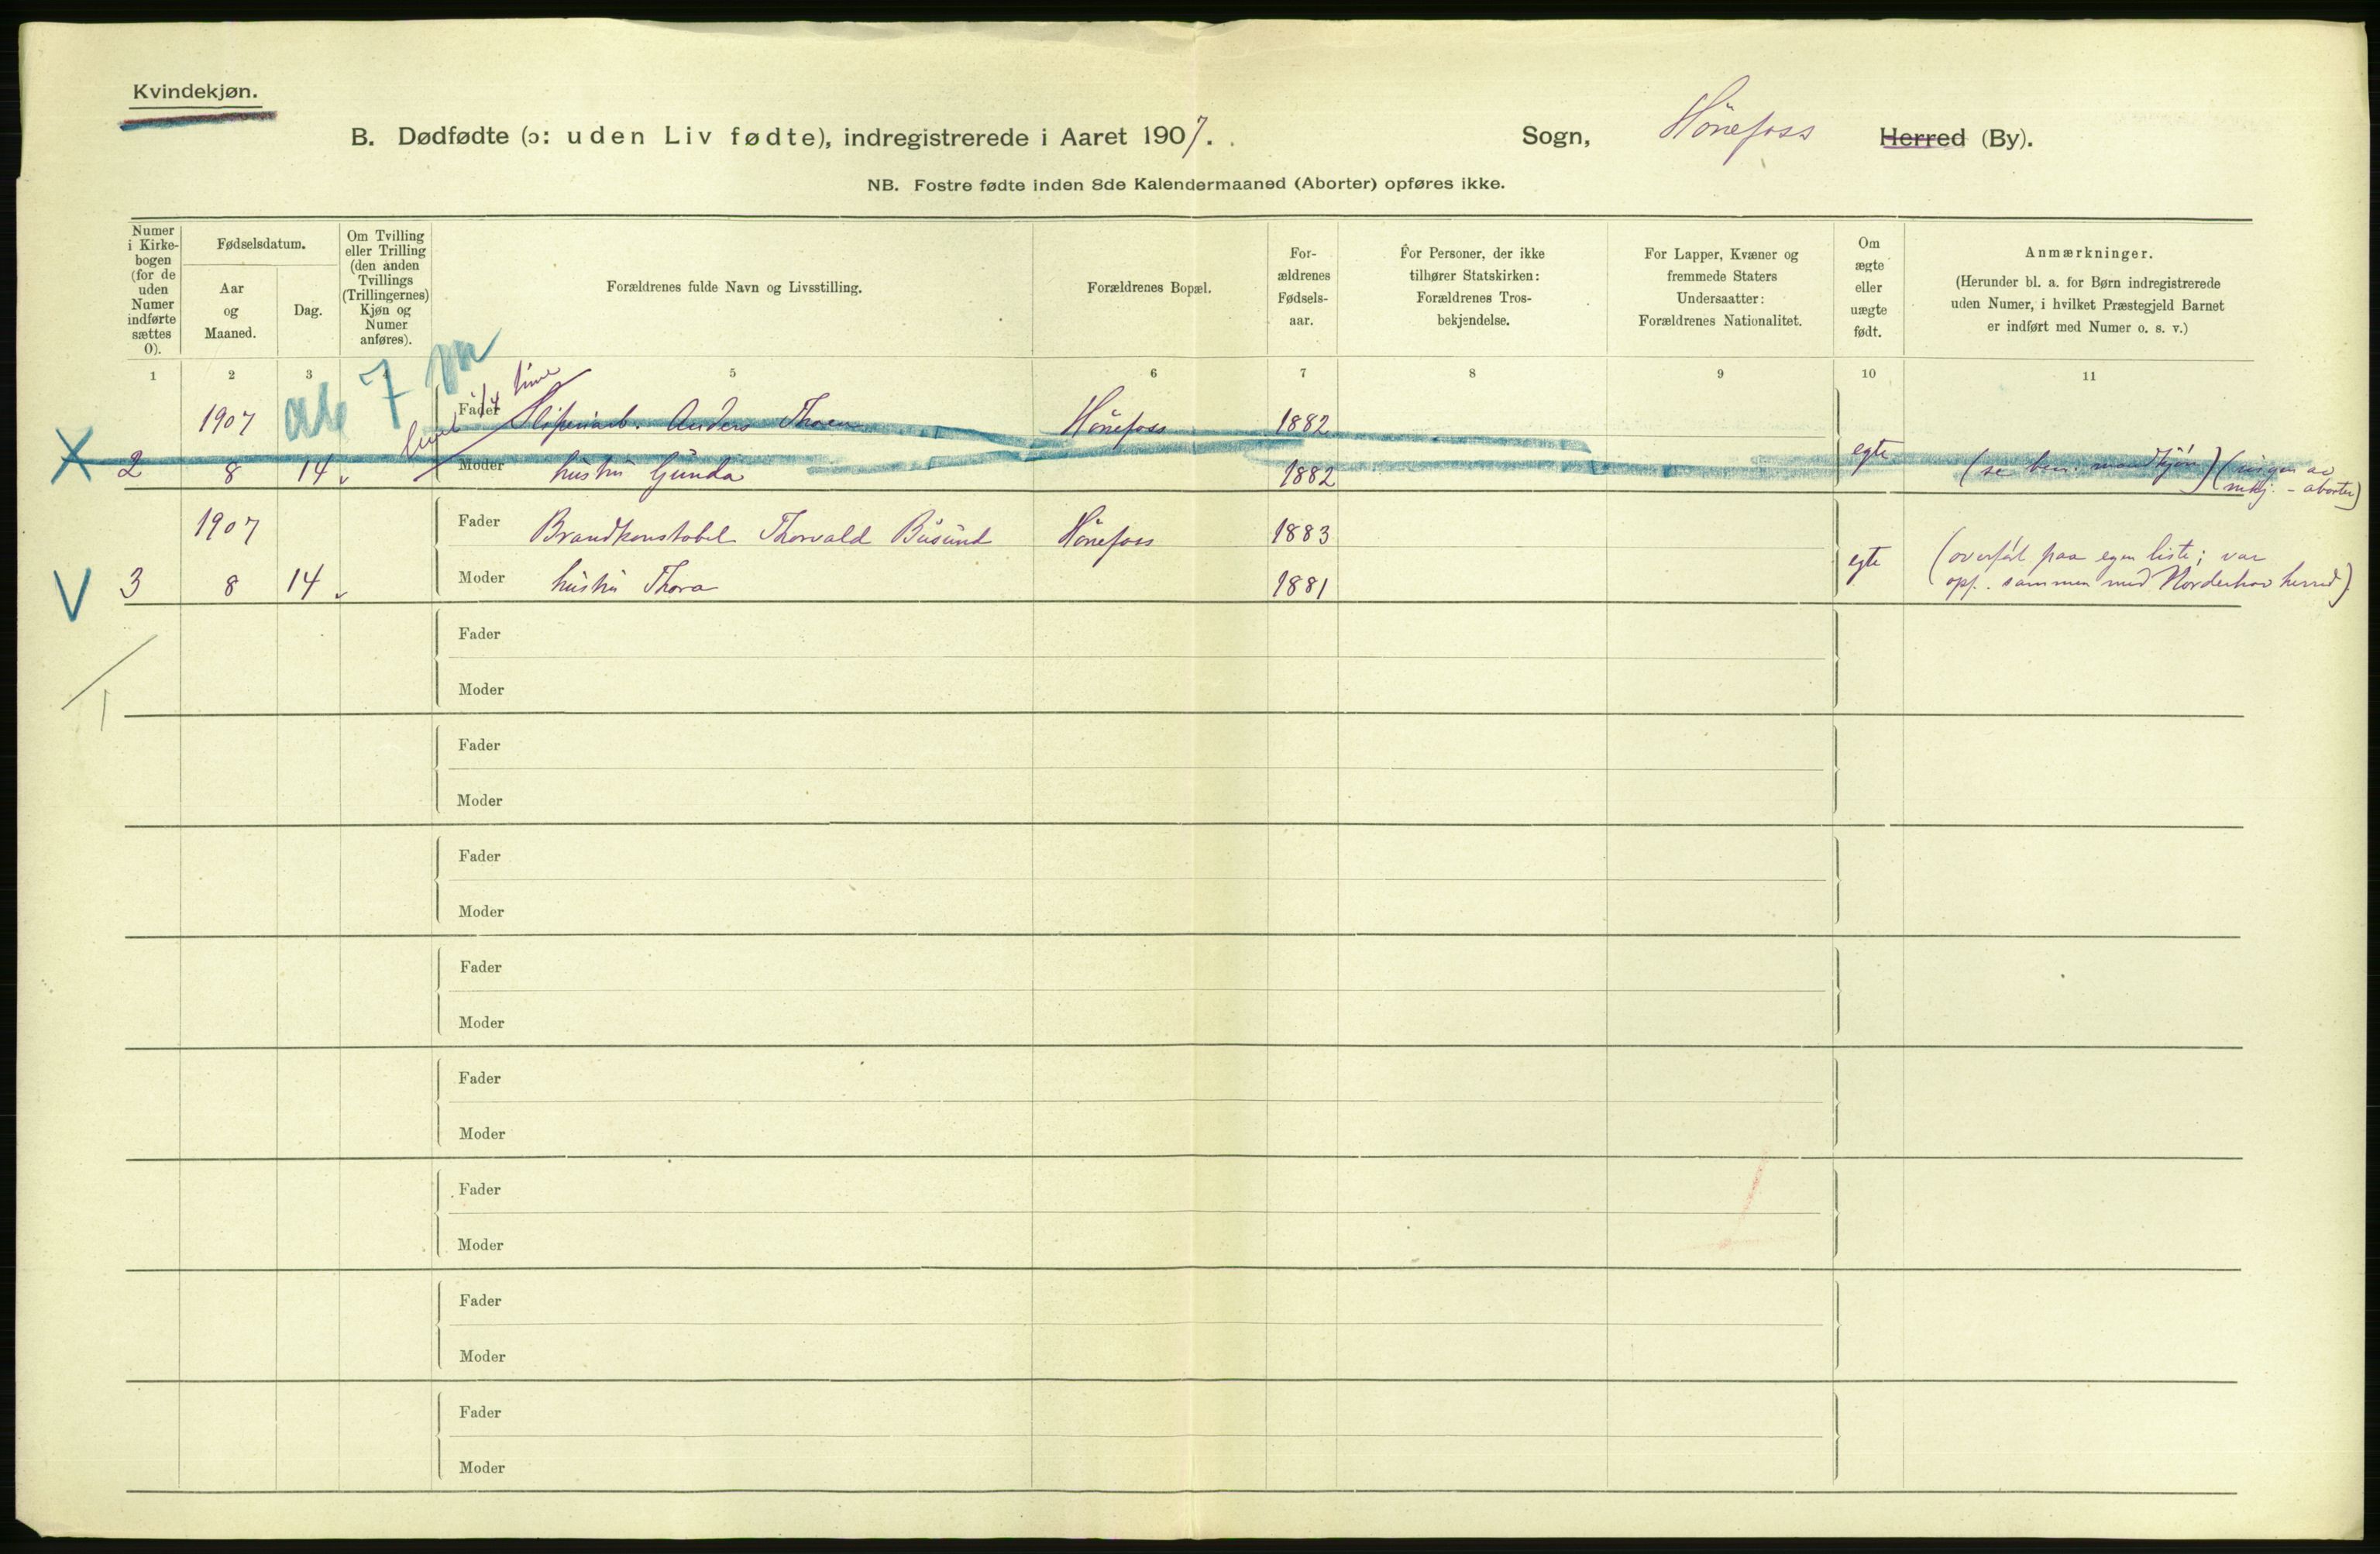 Kvindekjøn.
B. Dødfødte (ɔ: uden Liv fødte), indregistrerede i Aaret 1907.
Sogn, Hönefoss Herred (By).
NB. Fostre fødte inden 8de Kalendermaaned (Aborter) opføres ikke.
Numer
i Kirke-
bogen
(for de
uden
Numer
indførte
sættes
0).
Fødselsdatum.
Aar
og
Maaned.
Dag.
Om Tvilling
eller Trilling
(den anden
Tvillings
(Trillingernes)
Kjøn og
Numer
anføres).
Forældrenes fulde Navn og Livsstilling.
Forældrenes Bopæl.
For-
ældrenes
Fødsels-
aar.
For Personer, der ikke
tilhører Statskirken:
Forældrenes Tros-
bekjendelse.
For Lapper, Kvæner og
fremmede Staters
Undersaatter:
Forældrenes Nationalitet.
Om
ægte
eller
uægte
født.
Anmærkninger.
(Herunder bl. a. for Børn indregistrerede
uden Numer, i hvilket Præstegjeld Barnet
er indført med Numer o. s. v.)
1 2 3 4 5 6 7 8 9 10 11
7
levet 1/4 time
1907 Fader Sliperiarb. Anders Thoen Hönefoss 1882
X 2 8 14 Moder hustru Gunda 1882 egte (se mandkjön) (ingen av
mkj. - aborter)
1907 Fader Brandkonstabel Thorvald Busund Hönefoss 1883
V 3 8 14 Moder hustru Thora 1881 egte (overfört paa egen liste; var
opf. sammen med Norderhov herred)
Fader
1 Moder
Fader
Moder
Fader
Moder
Fader
Moder
Fader
Moder
Fader
Moder
Fader
Moder
Fader
Moder